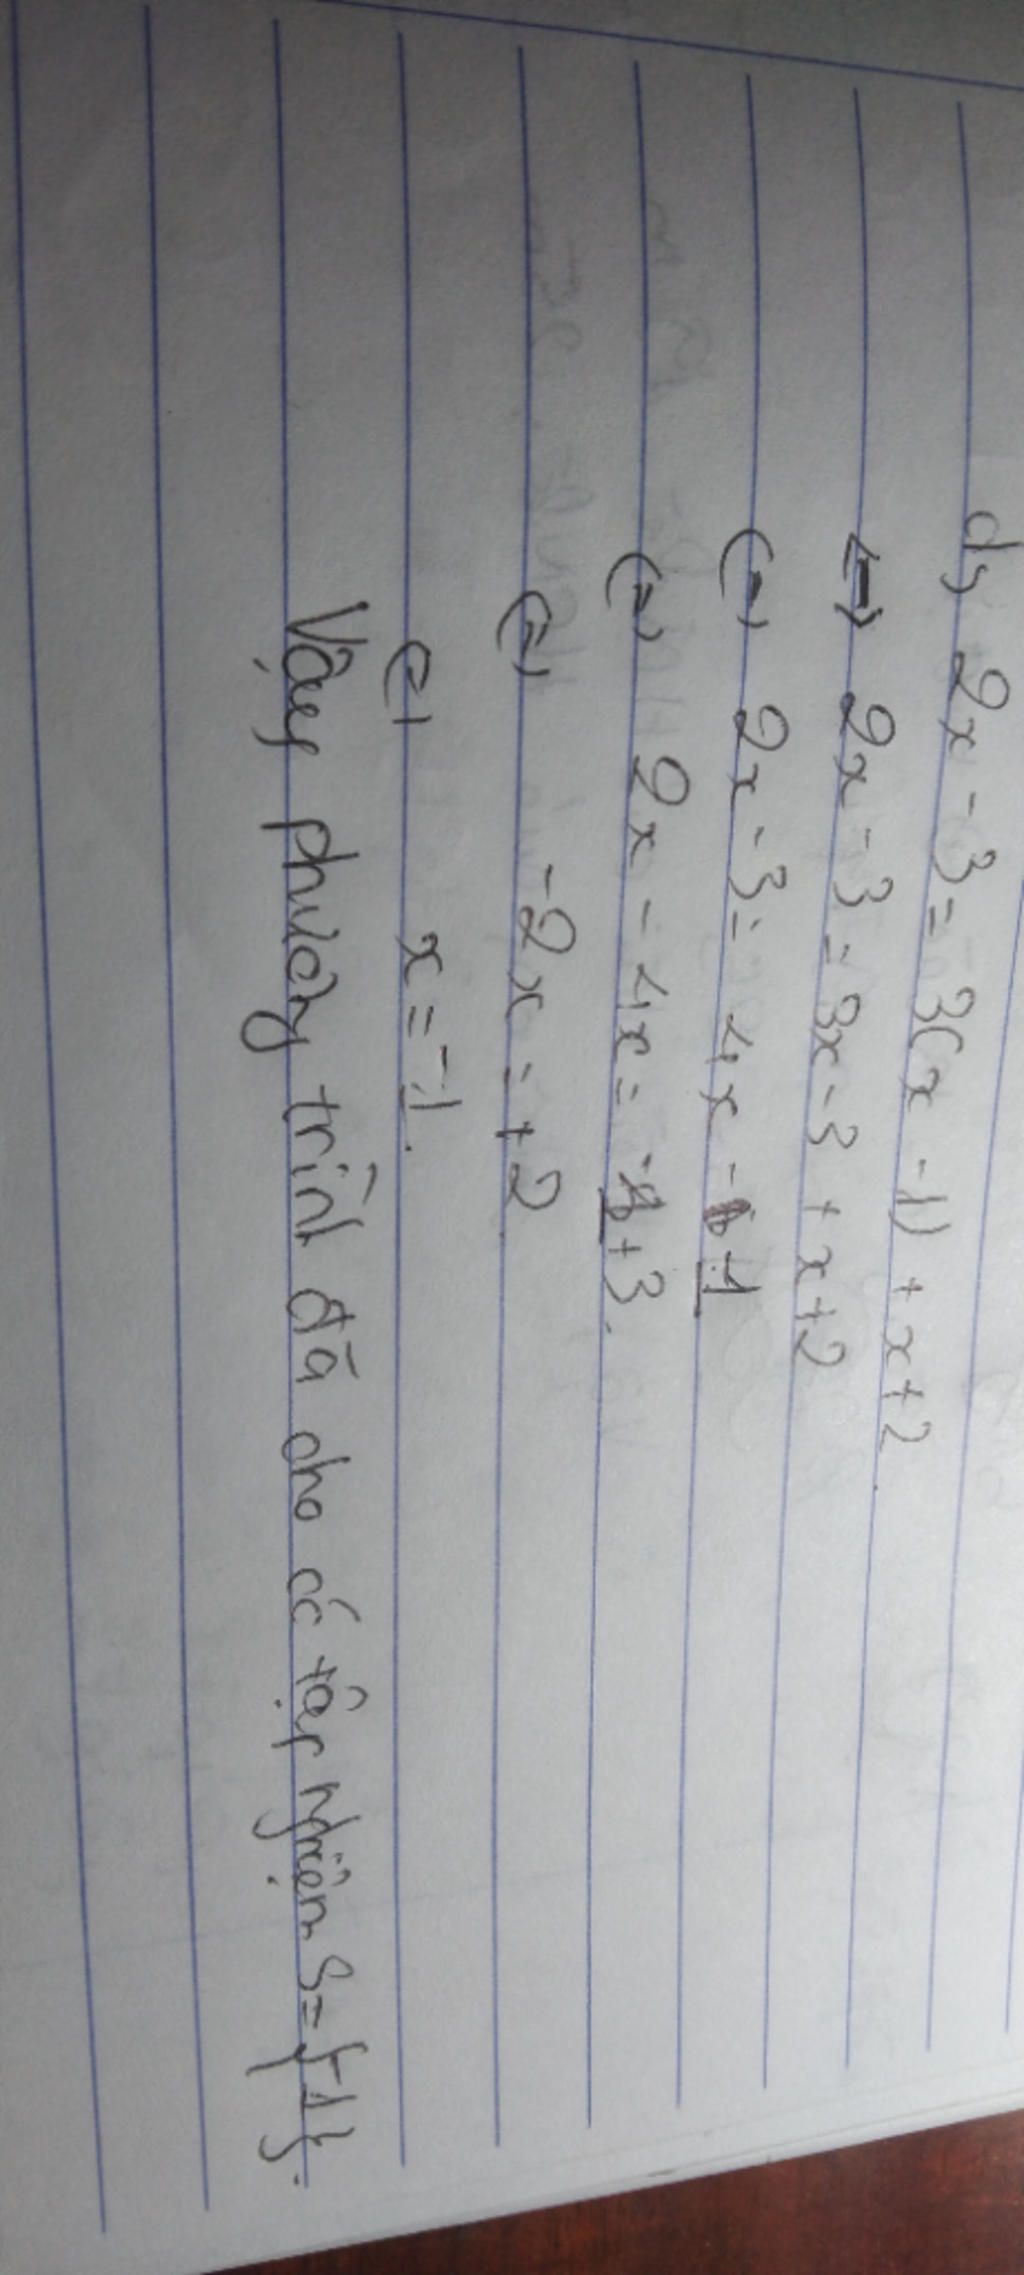 d) 2x - 3 = 3(x - 1) + x + 2
<=> 2x - 3 = 3x - 3 + x + 2
(=) 2x - 3 = 4x - 1
(=) 2x - 4x = -1 + 3.
(=) -2x = +2
(=) x = -1.
Vậy phương trình đã cho có tập nghiệm S = {-1}.